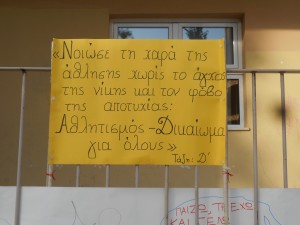 «Νοιώσε τη χαρά της
άθλησης χωρίς το άγχος
της νίκης και τον φόβο
της αποτυχίας:
Αθλητισμός-Δικαίωμα
για όλους»
Τάξη: Δ'
ΠΑΙΖΩ, ΤΡΕΧΩ
ΚΑΙ